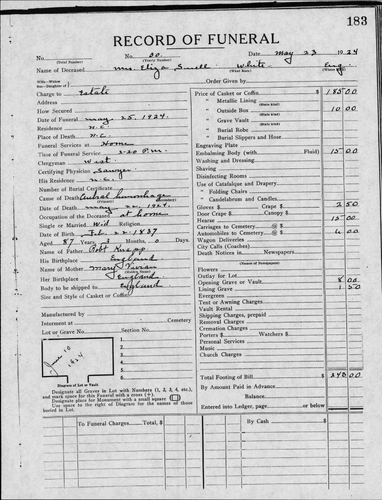 183
RECORD OF FUNERAL
No. No. 20 Date May 23 1924
(Total Number) (Yearly Number)
Name of Deceased Mrs. Eliza Snell White Eng.
(What Race)
Wife—Widow
Son—Daughter of Order Given by
Charge to Estate
Address
How Secured
Date of Funeral May 25, 1924.
Residence N.C.
Place of Death N.C.
Funeral Services at Home
Time of Funeral Service 2-30 P.m.
Clergyman West
Certifying Physician Sawyer
His Residence N.C.
Number of Burial Certificate
Cause of Death Cerebral hemorrhage
Date of Death May 22, 1924.
Occupation of the Deceased at home
Single or Married Wid Religion
Date of Birth Feb 22-1837
Aged 87 Years 3 Months 0 Days
Name of Father Robt Knapp
His Birthplace England
Name of Mother Mary Vivian
Her Birthplace England
Body to be shipped to England
Size and Style of Casket or Coffin
Manufactured by
Interment at Cemetery
Lot or Grave No. Section No.
1.
2.
3.
4.
5.
6.
Diagram of Lot or Vault
Designate all Graves in Lot with Numbers (1, 2, 3, 4, etc.),
and mark space for this Funeral with a cross (+).
Designate place for Monument with a small square
Use space to the right of Diagram for the names of those
buried in Lot.
Price of Casket or Coffin $ 185 00
" Metallic Lining
" Outside Box 10 00
" Grave Vault
" Burial Robe
" Burial Slippers and Hose
Engraving Plate
Embalming Body (with Fluid) $ 15 00
Washing and Dressing
Shaving
Disinfecting Rooms
Use of Catafalque and Drapery
" Folding Chairs
" Candelabrum and Candles
Gloves $ Door Crape $ Canopy $ 2 50
Hearse 15 00
Carriages to Cemetery @ $
Automobiles to Cemetery @ $ 6 00
Wagon Deliveries
City Calls (Coaches)
Death Notices in Newspapers
(Names of Newspapers)
Flowers
Outlay for Lot
Opening Grave or Vault 8 00
Lining Grave 1 50
Evergreen
Tent or Awning Charges
Vault Rental
Shipping Charges, prepaid
Removal Charges
Cremation Charges
Porters $ Watchers $
Personal Services
Music
Church Charges
Total Footing of Bill $ 243 00
By Amount Paid in Advance
Balance
Entered into Ledger, page or below
To Funeral Charges, Total $ By Cash $